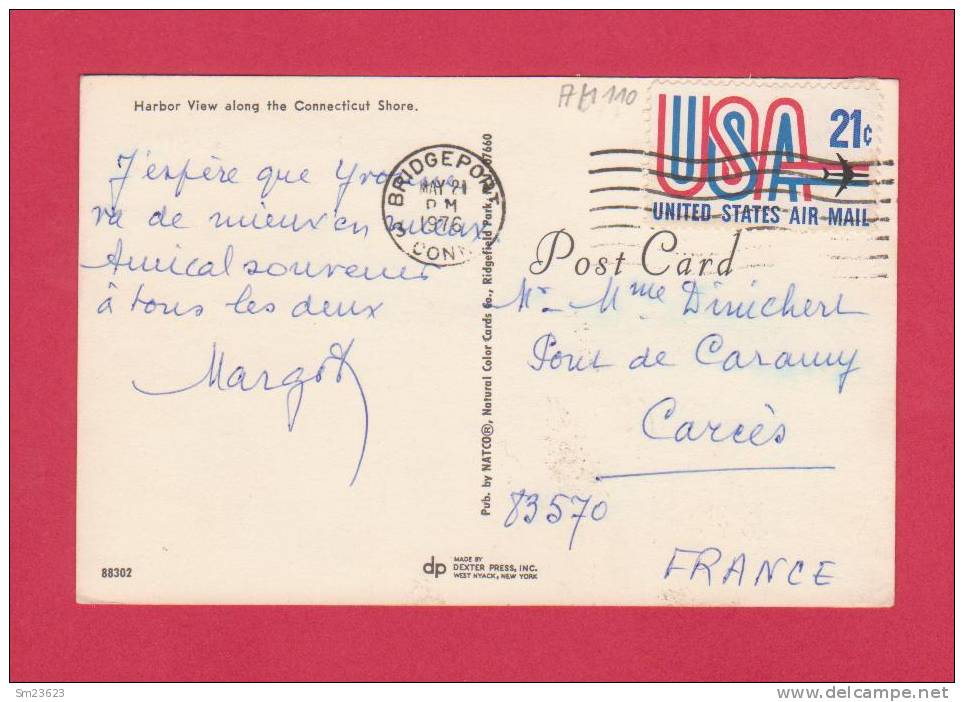 Harbor View along the Connecticut Shore.
J'espère que
va de mieux en mieux
Amical souvenir
à tous les deux
Margot
88302
Pub. by NATCO®, Natural Color Cards Co., Ridgefield Park, 07660
MADE BY
dp DEXTER PRESS, INC.
WEST NYACK, NEW YORK
BRIDGEPORT
MAY 21
PM
1976
CONN
3
AM 110
USA
21c
UNITED STATES AIR MAIL
Post Card
Mr Mme Dinichert
Pont de Caramy
Carcès
83570
FRANCE
Sm23623
www.delcampe.net